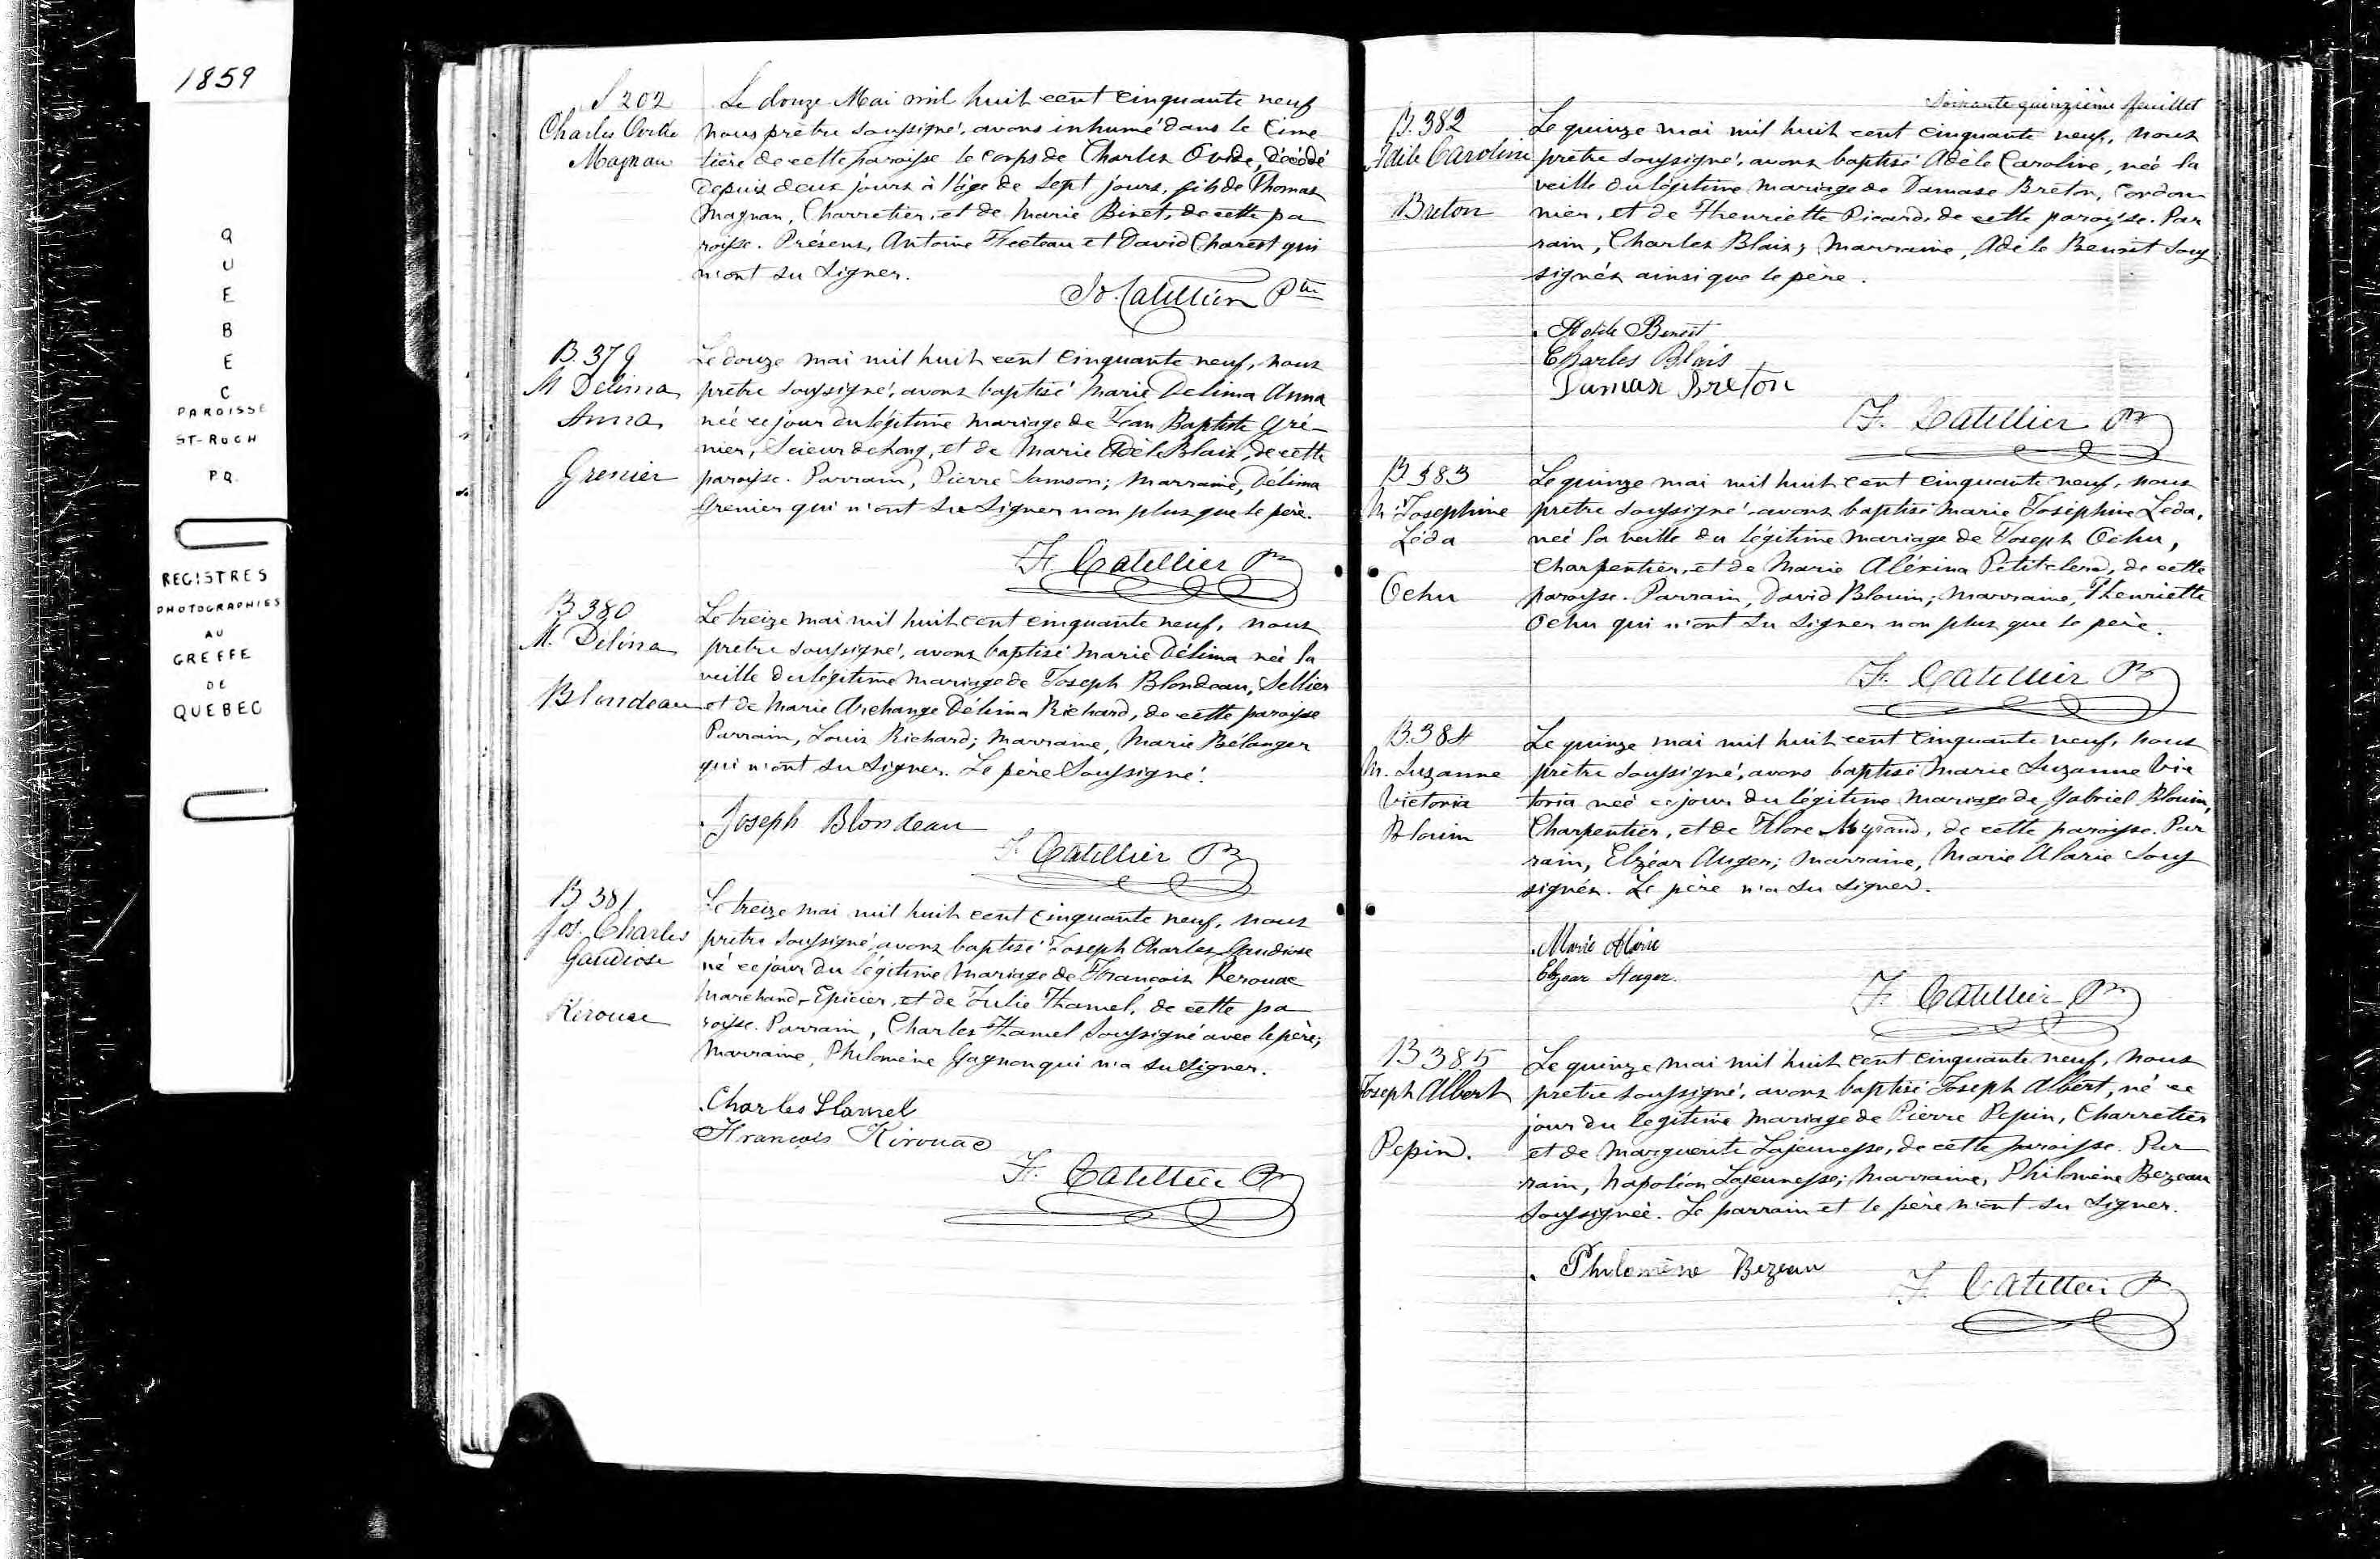 1859
QUEBEC
PAROISSE
ST-ROCH
P.Q.
REGISTRES
PHOTOGRAPHIES
AU
GREFFE
DE
QUEBEC
S 202
Charles Ovide
Magnan
Le douze Mai mil huit cent cinquante neuf
nous prêtre soussigné, avons inhumé dans le cime
tière de cette paroisse le corps de Charles Ovide, décédé
depuis deux jours à l'âge de sept jours, fils de Thomas
Magnan, Charretier, et de Marie Binet, de cette pa
roisse. Présens, Antoine Fecteau et David Charest qui
n'ont su signer.
Catellier Ptre
B 379
M Delima
Anna
Grenier
Le douze mai mil huit cent cinquante neuf, nous
prêtre soussigné, avons baptisé Marie Delima Anna
née ce jour du légitime mariage de Jean Baptiste Gré-
nier, Scieur de Long, et de Marie Adèle Blais, de cette
paroisse. Parrain, Pierre Samson; marraine, Délima
Grenier qui n'ont su signer non plus que le père.
F. Catellier Ptre
B 380
M. Delima
Blondeau
Le treize mai mil huit cent cinquante neuf, nous
prêtre soussigné, avons baptisé Marie Délima née la
veille du légitime mariage de Joseph Blondeau, Sellier
et de Marie Archange Délima Richard, de cette paroisse
Parrain, Louis Richard; marraine, Marie Bélanger
qui n'ont su signer. Le père soussigné.
Joseph Blondeau
F. Catellier Ptre
B 381
Jos. Charles
Gaudiose
Kérouac
Le treize mai mil huit cent cinquante neuf, nous
prêtre soussigné, avons baptisé Joseph Charles Gaudiose
né ce jour du légitime mariage de François Kerouac
Marchand-Epicier, et de Julie Hamel, de cette pa
roisse. Parrain, Charles Hamel soussigné avec le père;
Marraine, Philomène Gagnon qui n'a su signer.
Charles Hamel
François Kirouac
F. Catellier Ptre
Soixante quinzième feuillet
B. 382
Adèle Caroline
Breton
Le quinze mai mil huit cent cinquante neuf, nous
prêtre soussigné, avons baptisé Adèle Caroline, née la
veille du légitime mariage de Damase Breton, Cordon
nier, et de Henriette Picard, de cette paroisse. Par
rain, Charles Blais; Marraine, Adèle Benoit sous
signés ainsi que le père.
Adèle Benoit
Charles Blais
Damase Breton
F. Catellier Ptre
B 383
M. Josephine
Léda
Ochu
Le quinze mai mil huit cent cinquante neuf, nous
prêtre soussigné, avons baptisé Marie Joséphine Léda,
née la veille du légitime mariage de Joseph Ochu,
Charpentier, et de Marie Aléxina Petitclerc, de cette
paroisse. Parrain, David Blouin; Marraine, Henriette
Ochu qui n'ont su signer non plus que le père.
F. Catellier Ptre
B. 384
M. Suzanne
Victoria
Blouin
Le quinze mai mil huit cent cinquante neuf, nous
prêtre soussigné, avons baptisé Marie Suzanne Vic
toria née ce jour du légitime mariage de Gabriel Blouin,
Charpentier, et de Flore Myrand, de cette paroisse. Par
rain, Elzéar Auger; Marraine, Marie Alarie sous
signés. Le père n'a su signer.
Marie Alarie
Elzear Auger
F. Catellier Ptre
B 385
Joseph Albert
Pepin.
Le quinze mai mil huit cent cinquante neuf, nous
prêtre soussigné, avons baptisé Joseph Albert, né ce
jour du légitime mariage de Pierre Pepin, Charretier
et de Marguerite Lajeunesse, de cette paroisse. Par
rain, Napoléon Lajeunesse; Marraine, Philomène Bezeau
soussignée. Le parrain et le père n'ont su signer.
Philomène Bezeau
F. Catellier Ptre